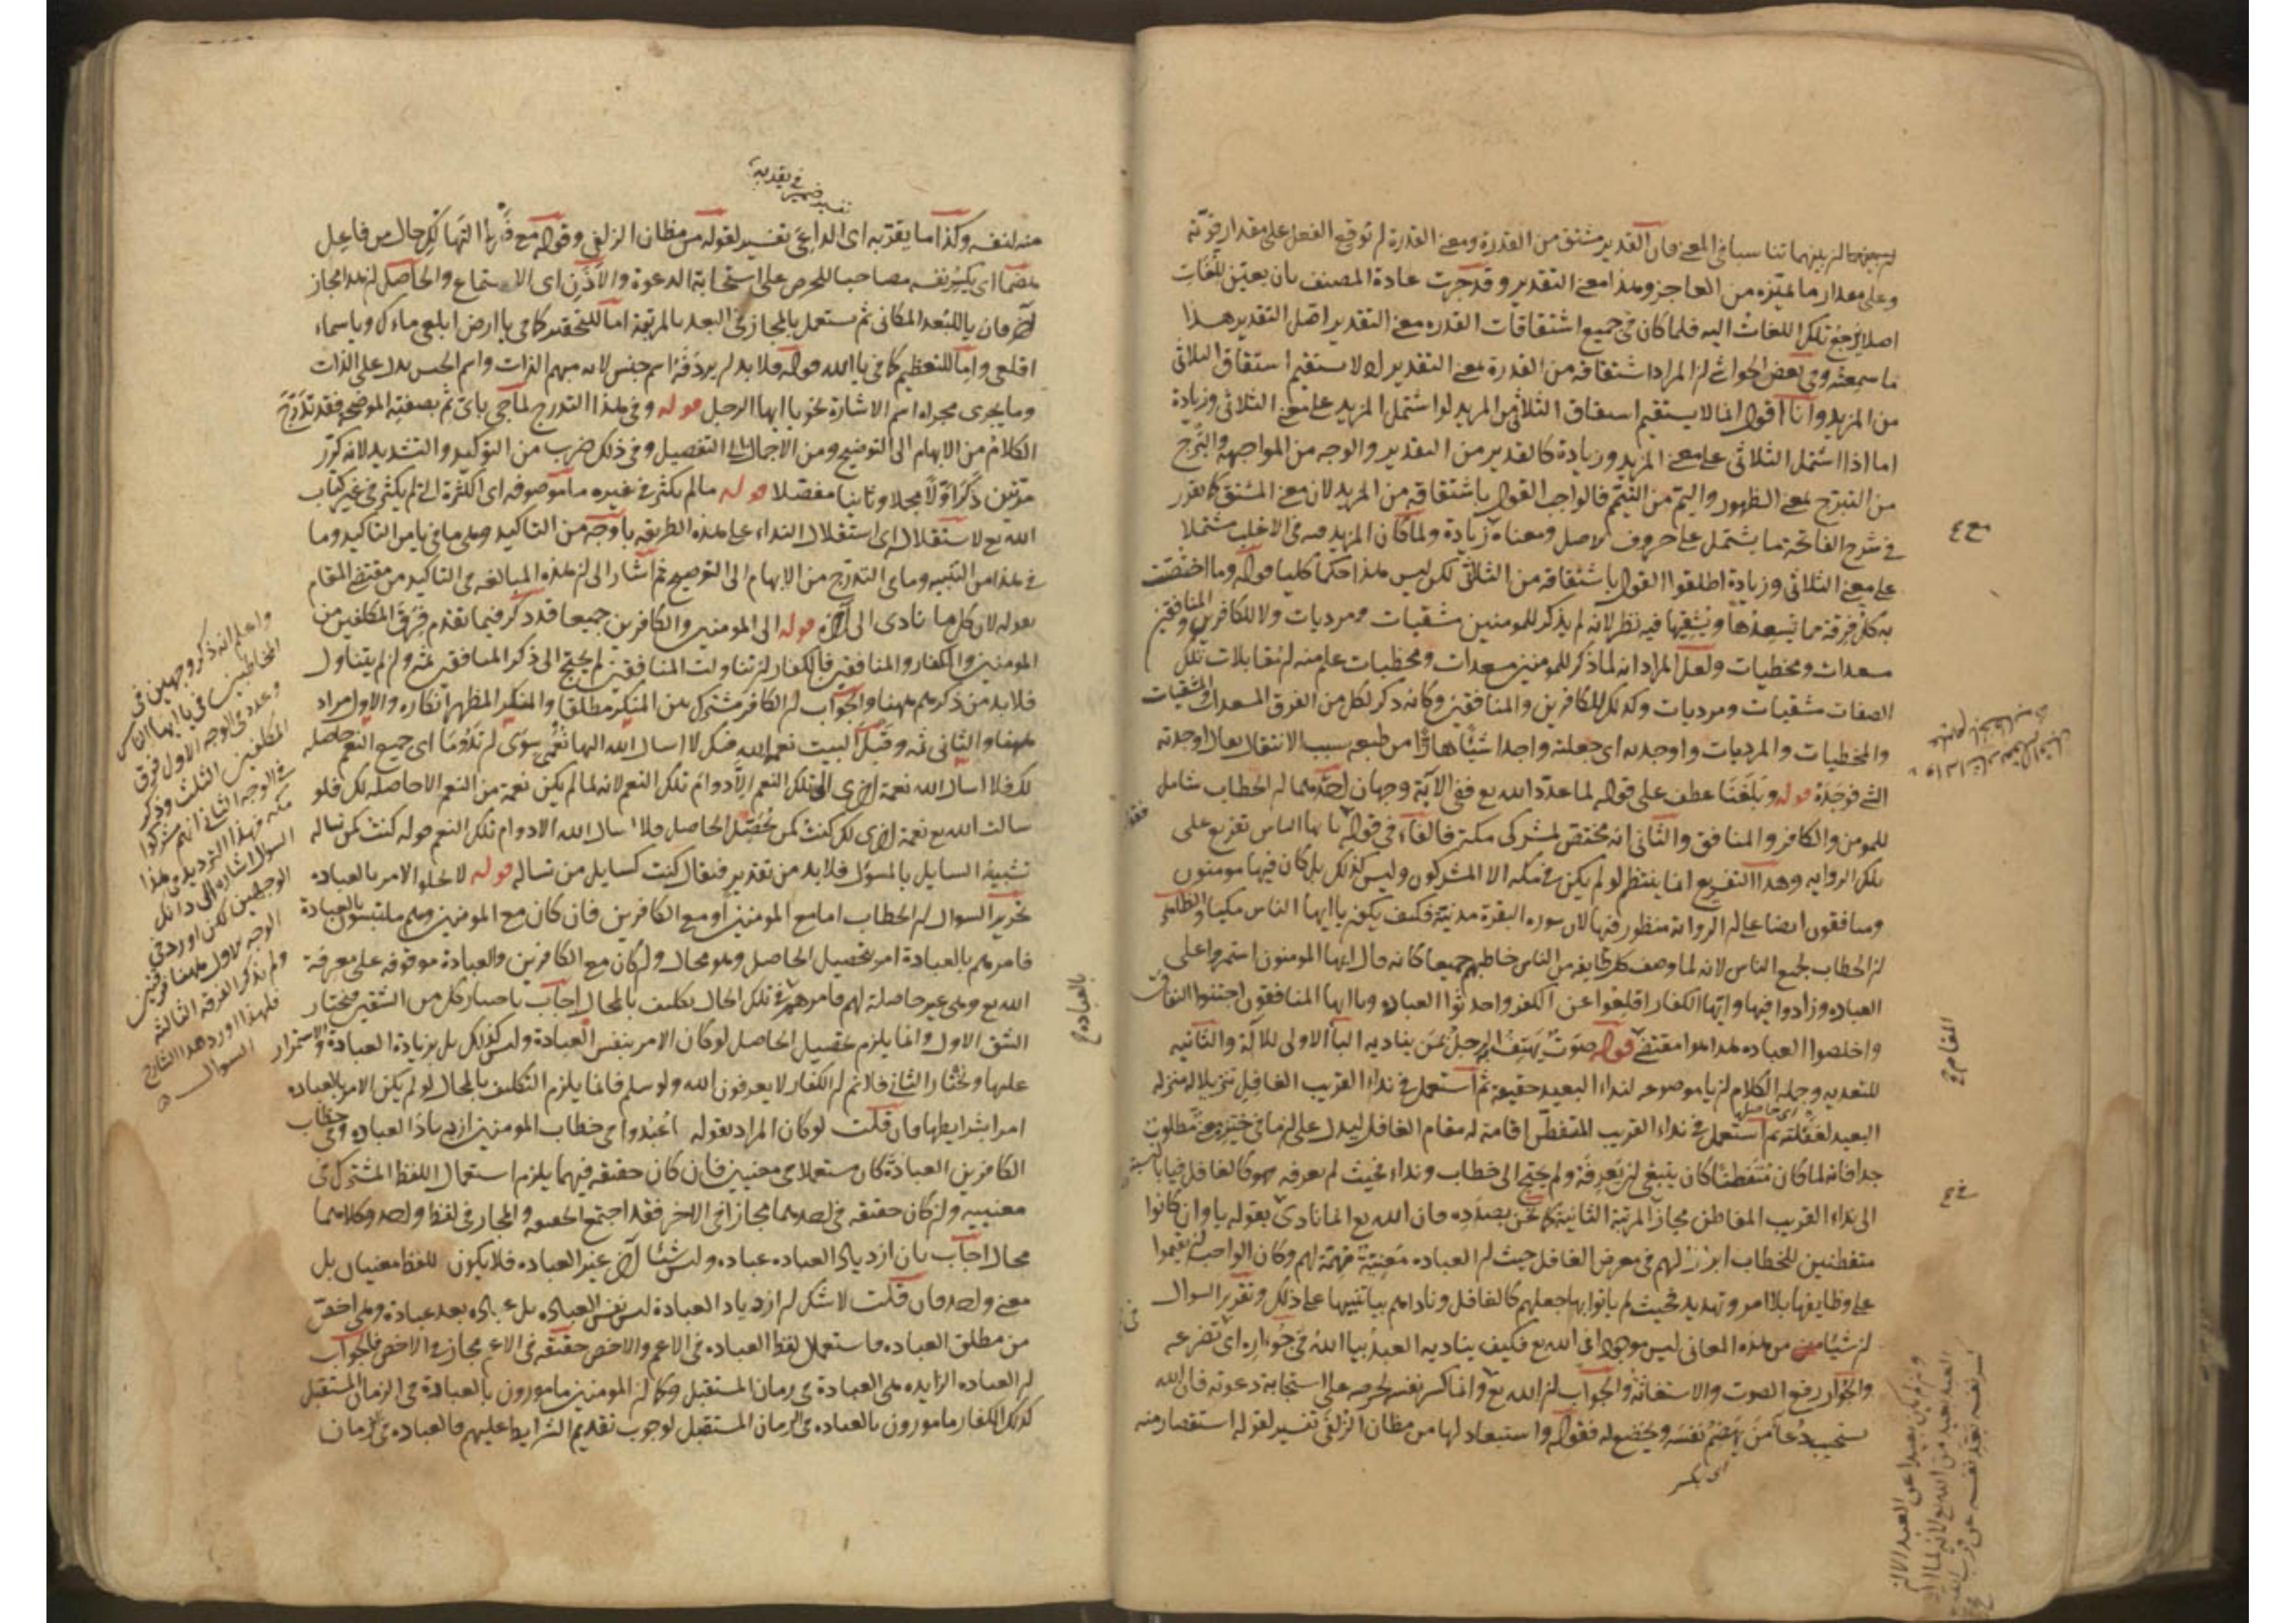 بينهما تناسبا في المعنى فان القدير مشتق من القدرة ومعنى القدرة توقع الفعل على مقدار قوته
وعلى مقدار ما يميزه من العاجز وهذا معنى التقدير وقد جرت عادة المصنف بان يعين للغات
اصلا يرجع تلك اللغات اليه فلما كان في جميع اشتقاقات القدره معنى التقدير اصل التقدير هذا
ما سمعته وفي بعض الحواشي ان المراد اشتقاقه من القدرة بمعنى التقدير اذ لا يستقيم استقاق الثلاثي
من المزيد وانا اقول انما لا يستقيم استقاق الثلاثي من المزيد لو اشتمل المزيد على معنى الثلاثي وزيادة
اما اذا اشتمل الثلاثي على معنى المزيد وزيادة كالقدير من التقدير والوجه من المواجهة والبرج
من التبرج بمعنى الظهور واليم من التيمم فالواجب القول باشتقاقه من المزيد لان معنى المشتق كما تقرر
في شرح الفاتحة ما يشتمل على حروف الاصل ومعناه زيادة ولما كان المزيد فيه في الاغلب مشتملا
على معنى الثلاثي وزيادة اطلقوا القول باشتقاقه من الثلاثي لكن ليس هذا حكما كليا قوله وما اختصت
به كل فرقة مما يسعدها ويشقيها فيه نظر لانه لم يذكر للمومنين مشقيات ومرديات ولا للكافرين والمنافقين
مسعدات ومحظيات ولعل المراد انه لما ذكر للمومنين مسعدات ومحظيات علم منه ان مقابلات تلك
الصفات مشقيات ومرديات وكذلك للكافرين والمنافقين وكانه ذكر لكل من الفرق المسعدات والمشقيات
والمحظيات والمرديات واوجدنه اي جعلته واجدا شيئا هازا من طبعه بسبب الانتقال يقال اوجدته
الشي فوجده قوله وبلغنا عطف على قوله لما عدد الله تع ففي الآية وجهان احدهما ان الخطاب شامل
للمومن والكافر والمنافق والثاني انه مختص بمشركي مكة فالفاء في قوله يا ايها الناس تفريع على
تلك الروايه وهذا التفريع انما ينتظم لو لم يكن في مكه الا المشركون وليس كذلك بل كان فيها مومنون
ومنافقون ايضا على ان الرواية منظور فيها لان سوره البقرة مدنية فكيف يكون يا ايها الناس مكيا والظاهر
ان الخطاب لجميع الناس لانه لما وصف كل طايفه من الناس خاطبهم جميعا كانه قال ايها المومنون استمروا على
العباده وزادوا فيها وايها الكفار اقلعوا عن الكفر واحدثوا العباده ويا ايها المنافقون اجتنبوا النفاق
واخلصوا العباده هذا هو مقتضى قوله صوت يهتف الرجل بمن يناديه البا الاولى للآلة والثانيه
للتعديه وجملة الكلام ان يا موضوعه لنداء البعيد حقيقة ثم استعمل في نداء القريب الغافل تنزيلا له منزلة
البعيد لغفلته ثم استعمل في نداء القريب المتفطن اقامة له مقام الغافل ليدل على ان ما في حيزه معنى مطلوب
جدا فانه لما كان متفطنا كان ينبغي ان يعرفه ولم يحتج الى خطاب ونداء فحيث لم يعرفه فهو كالغافل فيا بالنسبة
الى نداء القريب الفاطن مجاز المرتبة الثانية كما نحن بصدده فان الله تع انما نادى بقوله يا وان كانوا
متفطنين للخطاب ابرزا لهم في معرض الغافل حيث ان العباده معنية مهمة لهم وكان الواجب ان يقوموا
على وظايفها بلا امر وتهديد فحيث لم ياتوا بها جعلهم كالغافل وناداهم بيا تنبيها على ذلك وتقرير السوال
ان شيئا من هذه المعاني ليس موجودا في الله تع فكيف يناديه العبد بيا الله في جؤاره اي تضرعه
والجؤار رفع الصوت والاستغاثة والجواب ان الله تع وانما كسر نفسه لحرصه على استجابة دعوته فان الله
يستجيب دعا من يهضم نفسه ويخضع له فقوله واستبعاد لها من مظان الزلفى تفسير لقوله استقصار منه
اي بكسر
المقام
تفسير ضمير في يقربه
منه لنفسه وكذا ما يقربه اي الداعي تفسير لقوله من مظان الزلفى وقوله مع فرط التهالك حال من فاعل
هضما اي يكسر نفسه مصاحبا للحرص على استجابة الدعوة والاذن اي الاستماع والحاصل ان هذا مجاز
آخر فان يا للبعد المكاني ثم يستعمل بالمجاز في البعد بالمرتبة اما للتحقير كما في يا ارض ابلعي ماءك ويا سماء
اقلعي واما للتعظيم كما في يا الله قوله فلا بد ان يردفه اسم جنس لانه مبهم الذات واسم الجنس يدل على الذات
وما يجري مجراه اسم الاشارة نحو يا ايها الرجل قوله وفي هذا التدرج لما جي باي ثم بصفته الموضحة فقد تدرج
الكلام من الابهام الى التوضيح ومن الاجمال الى التفصيل وفي ذلك ضرب من التوكيد والتشديد لانه كرر
مرتين ذكرا اولا مجملا وثانيا مفصلا قوله ما لم يكثر في غيره ما موصوفه اي الكثرة التي لم يكثر في غير كتاب
الله تع لاستقلاله اي استقلال النداء على هذه الطريقه باوجه من التاكيد وهي ما في يا من التاكيد وما
في هذا من التنبيه وما في التدرج من الابهام الى التوضيح ثم اشار الى ان هذه المبالغه في التاكيد من مقتضى المقام
بقوله لان كل ما نادى الى آخره قوله الى المومنين والكافرين جميعا قد ذكر فيما تقدم فرق المكلفين من
المومنين والكفار والمنافقين فالكفار ان تناولت المنافقين لم يحتج الى ذكر المنافقين ثمه وان لم يتناول
فلا بد من ذكرهم ههنا والجواب ان الكافر مشترك بين المنكر مطلقا والمنكر المظهر انكاره والاول مراد
ههنا والثاني ثمه وقيل البيت نعم الله فيك لا اسال الله اليها نعمى سوى ان تدوما اي جميع النعم حاصله
لك فلا اسال الله نعمة اخرى الى تلك النعم الا دوام تلك النعم لانه لما لم يكن نعمة من النعم الا حاصله لك فلو
سالت الله تع نعمة اخرى لك كنت كمن يحصل الحاصل فلا اسال الله الا دوام تلك النعم قوله كنت كمن تساله
تشبيه السايل بالمسؤل فلا بد من تقدير فيقال كنت كسايل من تساله قوله لا يخلوا الامر بالعباده
تحرير السوال ان الخطاب اما مع المومنين او مع الكافرين فان كان مع المومنين وهم ملتبسون بالعبادة
فامرهم بالعبادة امر بتحصيل الحاصل وهو محال وان كان مع الكافرين والعبادة موقوفه على معرفة
الله تع وهي غير حاصلة لهم فامرهم في تلك الحال تكليف بالمحال اجاب باختيار كل من الشقين فنختار
الشق الاول وانما يلزم تحصيل الحاصل لو كان الامر بنفس العبادة وليس كذلك بل بزيادة العبادة والاستمرار
عليها ونختار الثاني فلانم ان الكفار لا يعرفون الله ولو سلم فانما يلزم التكليف بالمحال لو لم يكن الامر بالعباده
امرا بشرايطها فان قلت لو كان المراد بقوله اعبدوا في خطاب المومنين ازدياد العباده وفي خطاب
الكافرين العبادة كان مستعملا في معنيين فان كان حقيقه فيهما يلزم استعمال اللفظ المشترك في
معنييه وان كان حقيقه في احدهما مجازا في الاخر فقد اجتمع الحقيقه والمجاز في لفظ واحد وكلاهما
محال اجاب بان ازدياد العباده عباده وليس شيئا آخر غير العباده فلا يكون للفظ معنيان بل
معنى واحد فان قلت لا شك ان ازدياد العبادة ليس نفس العباده بل عباده بعد عبادة وهي اخص
من مطلق العباده فاستعمال لفظ العباده في الاعم والاخص حقيقه في الاعم مجاز في الاخص فالجواب
ان العباده الزايده هي العبادة في زمان المستقبل وكما ان المومنين مامورون بالعبادة في الزمان المستقبل
كذلك الكفار مامورون بالعباده في الزمان المستقبل لوجوب تقديم الشرايط عليهم فالعباده في زمان
بالعباده
واعلم انه ذكر وجهين في
المخاطبين في يا ايها الناس
وعدد في الوجه الاول فرق
المكلفين الثلث وذكر
في الوجه الثاني انهم مشركوا
مكه فهذا الترديد في هذا
السوال اشاره الى ذانك
الوجهين لكن اورد في
الوجه الاول ههنا فرقتين
ولم يذكر الفرقه الثالثه
فلهذا اورد هذا الشارح
السوال